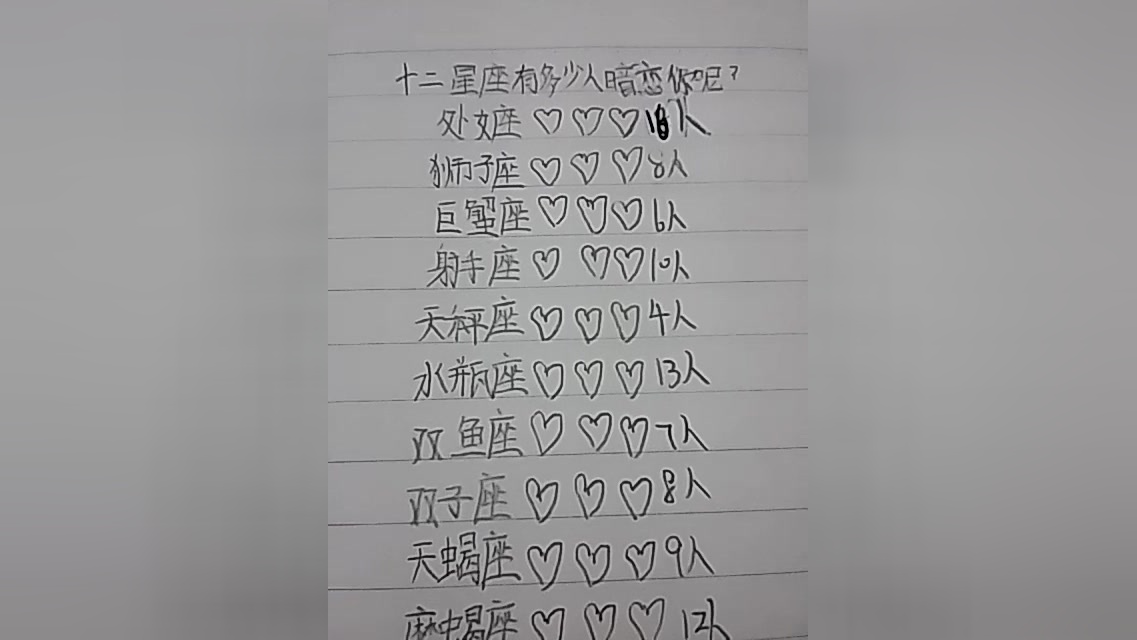 十二星座有多少人暗恋你呢?
处女座♡♡♡18人
狮子座♡♡♡8人
巨蟹座♡♡♡6人
射手座♡♡♡10人
天秤座♡♡♡4人
水瓶座♡♡♡13人
双鱼座♡♡♡7人
双子座♡♡♡8人
天蝎座♡♡♡9人
摩蝎座♡♡♡12人